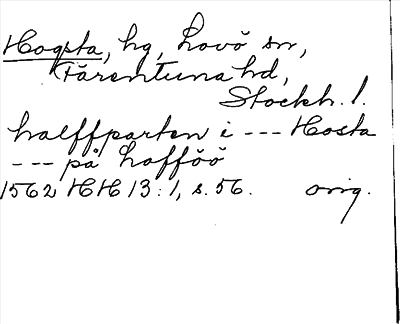 Hogsta, hg, Lovö sn,
Färentuna hd,
Stockh. l.
halffparten i --- Hosta
--- på hofföö
1562 HH 13:1, s. 56. orig.